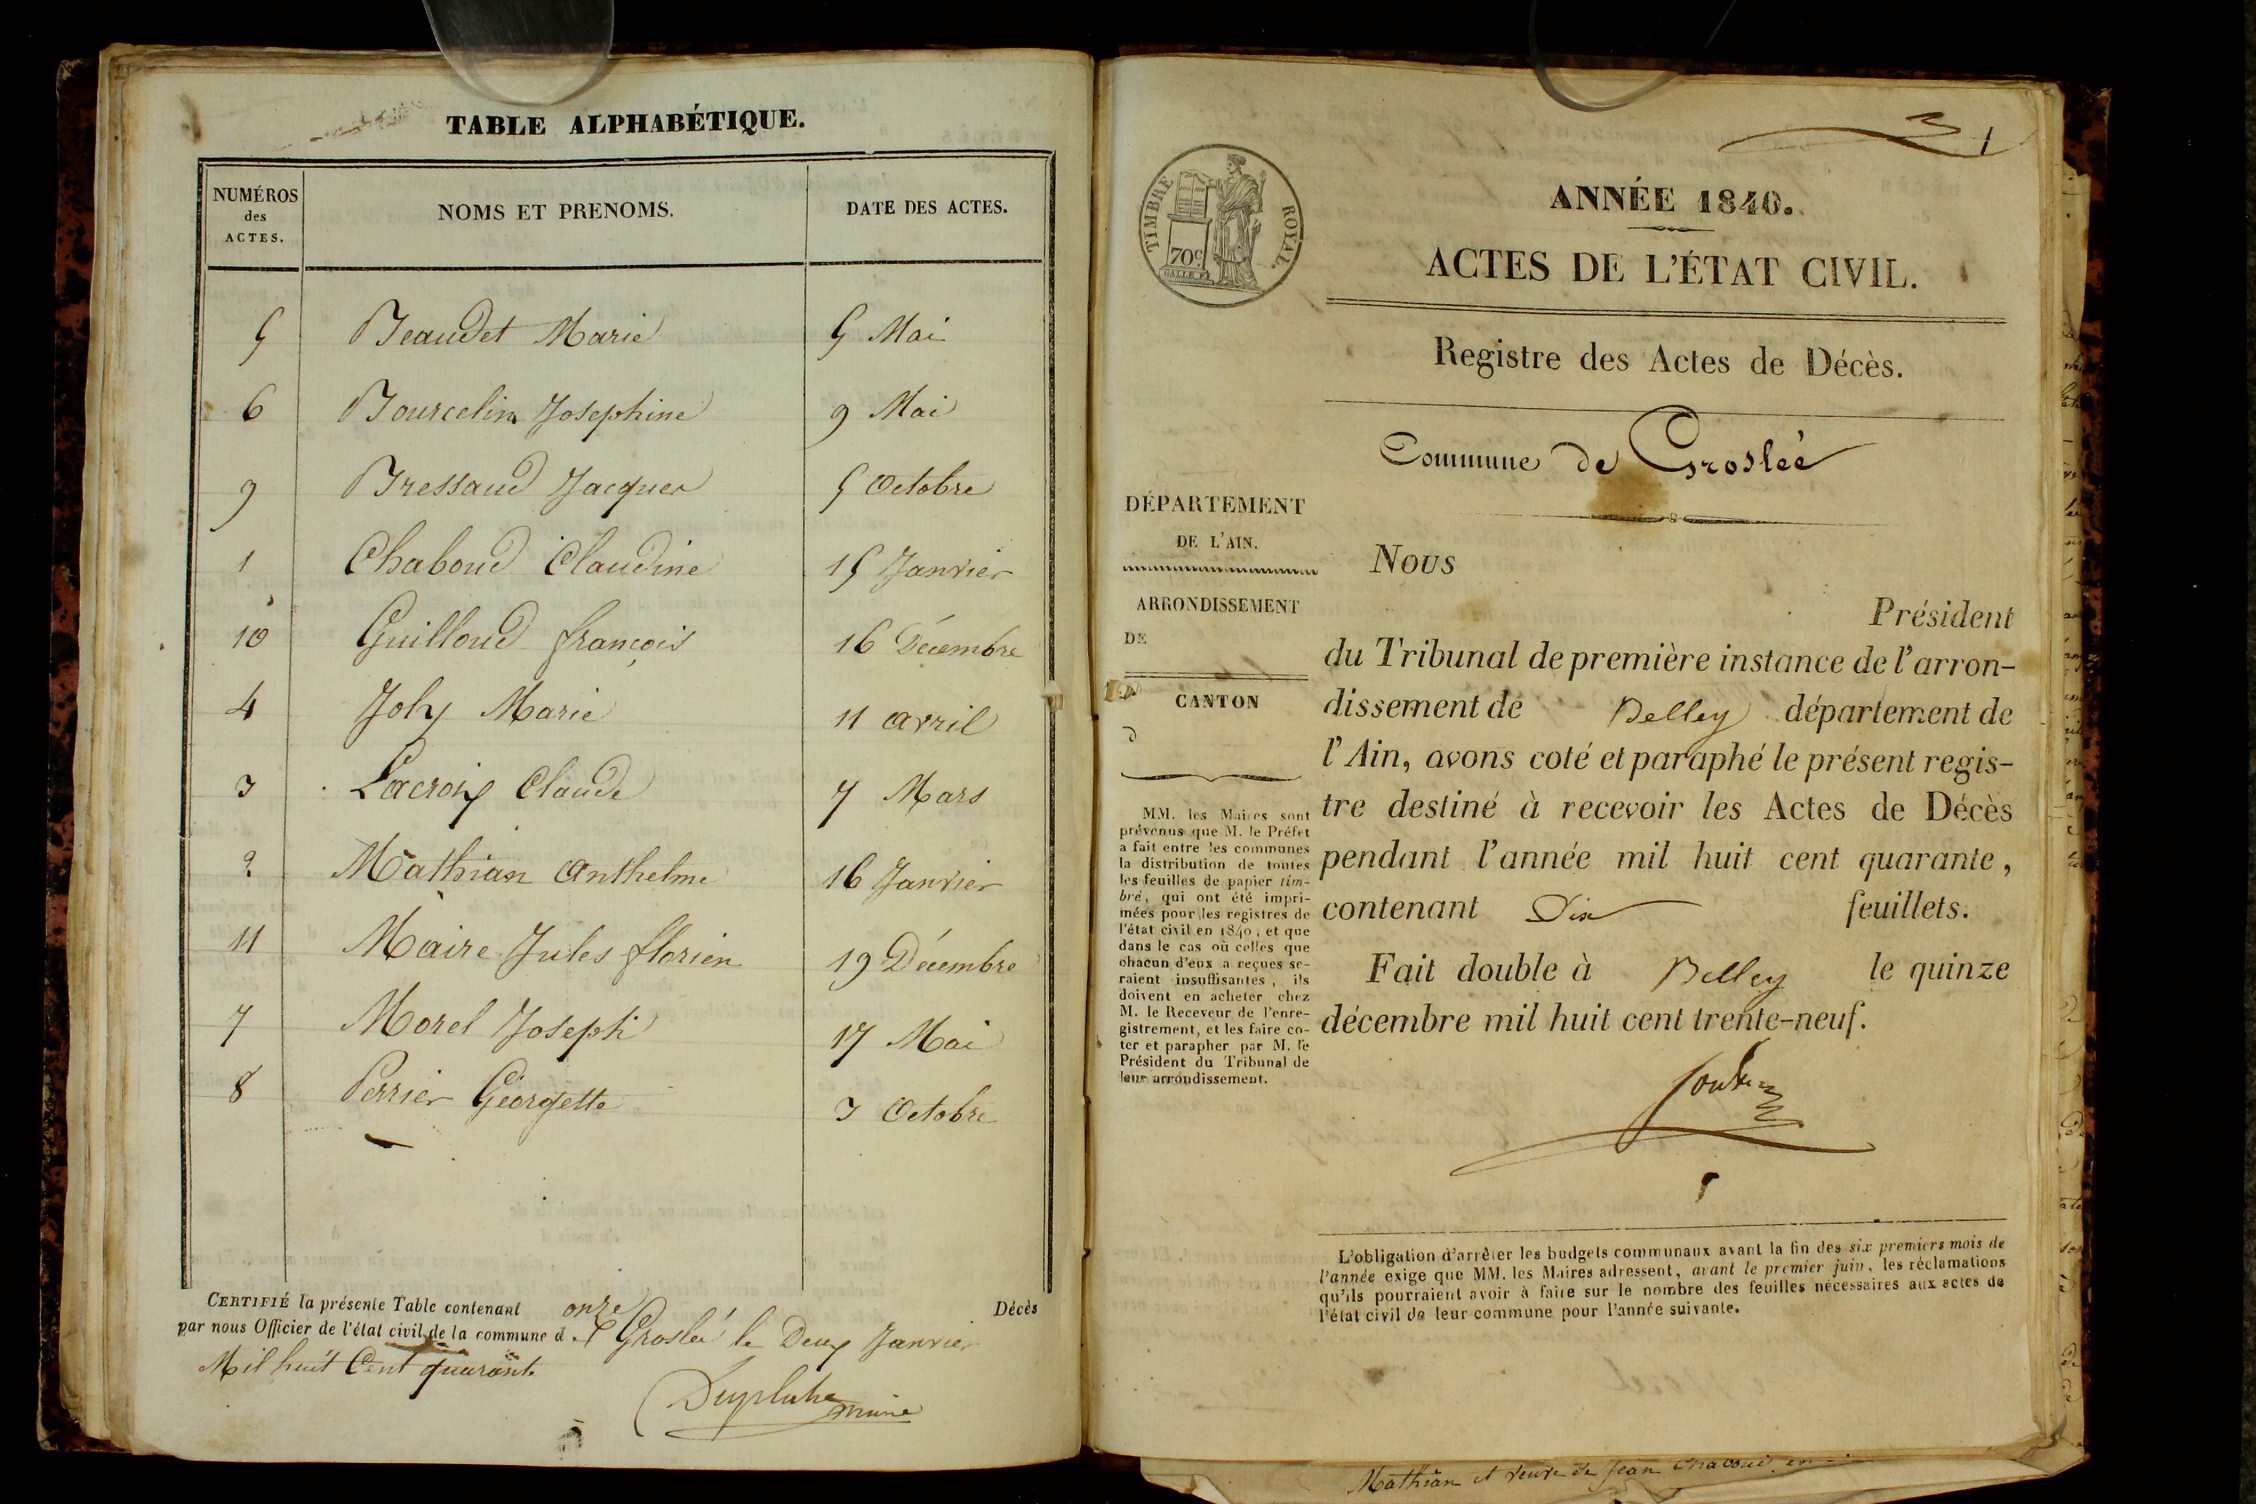 TABLE ALPHABÉTIQUE.
NUMÉROS
des
ACTES.
NOMS ET PRENOMS.
DATE DES ACTES.
5 Beaudet Marie 5 Mai
6 Bourcelin Josephine 9 Mai
9 Bressaud Jacques 5 Octobre
1 Chaboud Claudine 15 Janvier
10 Guilloud françois 16 Décembre
4 Joly Marie 11 avril
3 Lacroix Claude 7 Mars
2 Mathian Anthelme 16 Janvier
11 Maire Jules florien 19 Décembre
7 Morel Joseph 17 Mai
8 Perrier Georgette 3 Octobre
CERTIFIÉ la présente Table contenant onze Décès
par nous Officier de l'état civil de la commune d Groslée le Deux Janvier
Mil huit Cent quarante
maire
1
TIMBRE ROYAL.
70c
ANNÉE 1840.
ACTES DE L'ÉTAT CIVIL.
Registre des Actes de Décès.
Commune de Groslée
DÉPARTEMENT
DE L'AIN.
ARRONDISSEMENT
DE
CANTON
d
MM. les Maires sont
prévenus que M. le Préfet
a fait entre les communes
la distribution de toutes
les feuilles de papier tim-
bré, qui ont été impri-
mées pour les registres de
l'état civil en 1840, et que
dans le cas où celles que
chacun d'eux a reçues se-
raient insuffisantes, ils
doivent en acheter chez
M. le Receveur de l'enre-
gistrement, et les faire co-
ter et parapher par M. le
Président du Tribunal de
leur arrondissement.
Nous
Président
du Tribunal de première instance de l'arron-
dissement de Belley département de
l'Ain, avons coté et paraphé le présent regis-
tre destiné à recevoir les Actes de Décès
pendant l'année mil huit cent quarante,
contenant Dix feuillets.
Fait double à Belley le quinze
décembre mil huit cent trente-neuf.
L'obligation d'arrêter les budgets communaux avant la fin des six premiers mois de
l'année exige que MM. les Maires adressent, avant le premier juin, les réclamations
qu'ils pourraient avoir à faire sur le nombre des feuilles nécessaires aux actes de
l'état civil de leur commune pour l'année suivante.
Mathian et veuve de Jean Chaboud